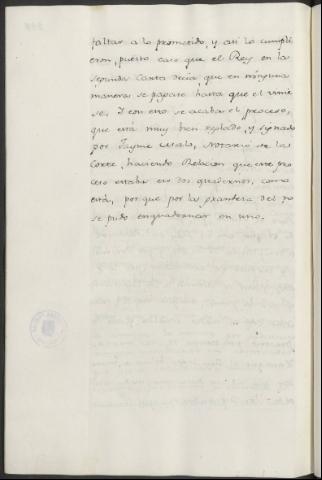 faltar a lo prometido, y asi lo cumpli
eron, puesto caso que el Rey en la
segunda Carta decia, que en ninguna
manera se pagase hasta que el vinie
se. I con esto se acaba el proceso,
que está muy bien reglado, y signado
por Jayme Notario de las
Corte, haciendo Relacion que este pro
ceso estaba en dos quadernos, como
está, por que por la del no
se pudo enquadernar en uno.